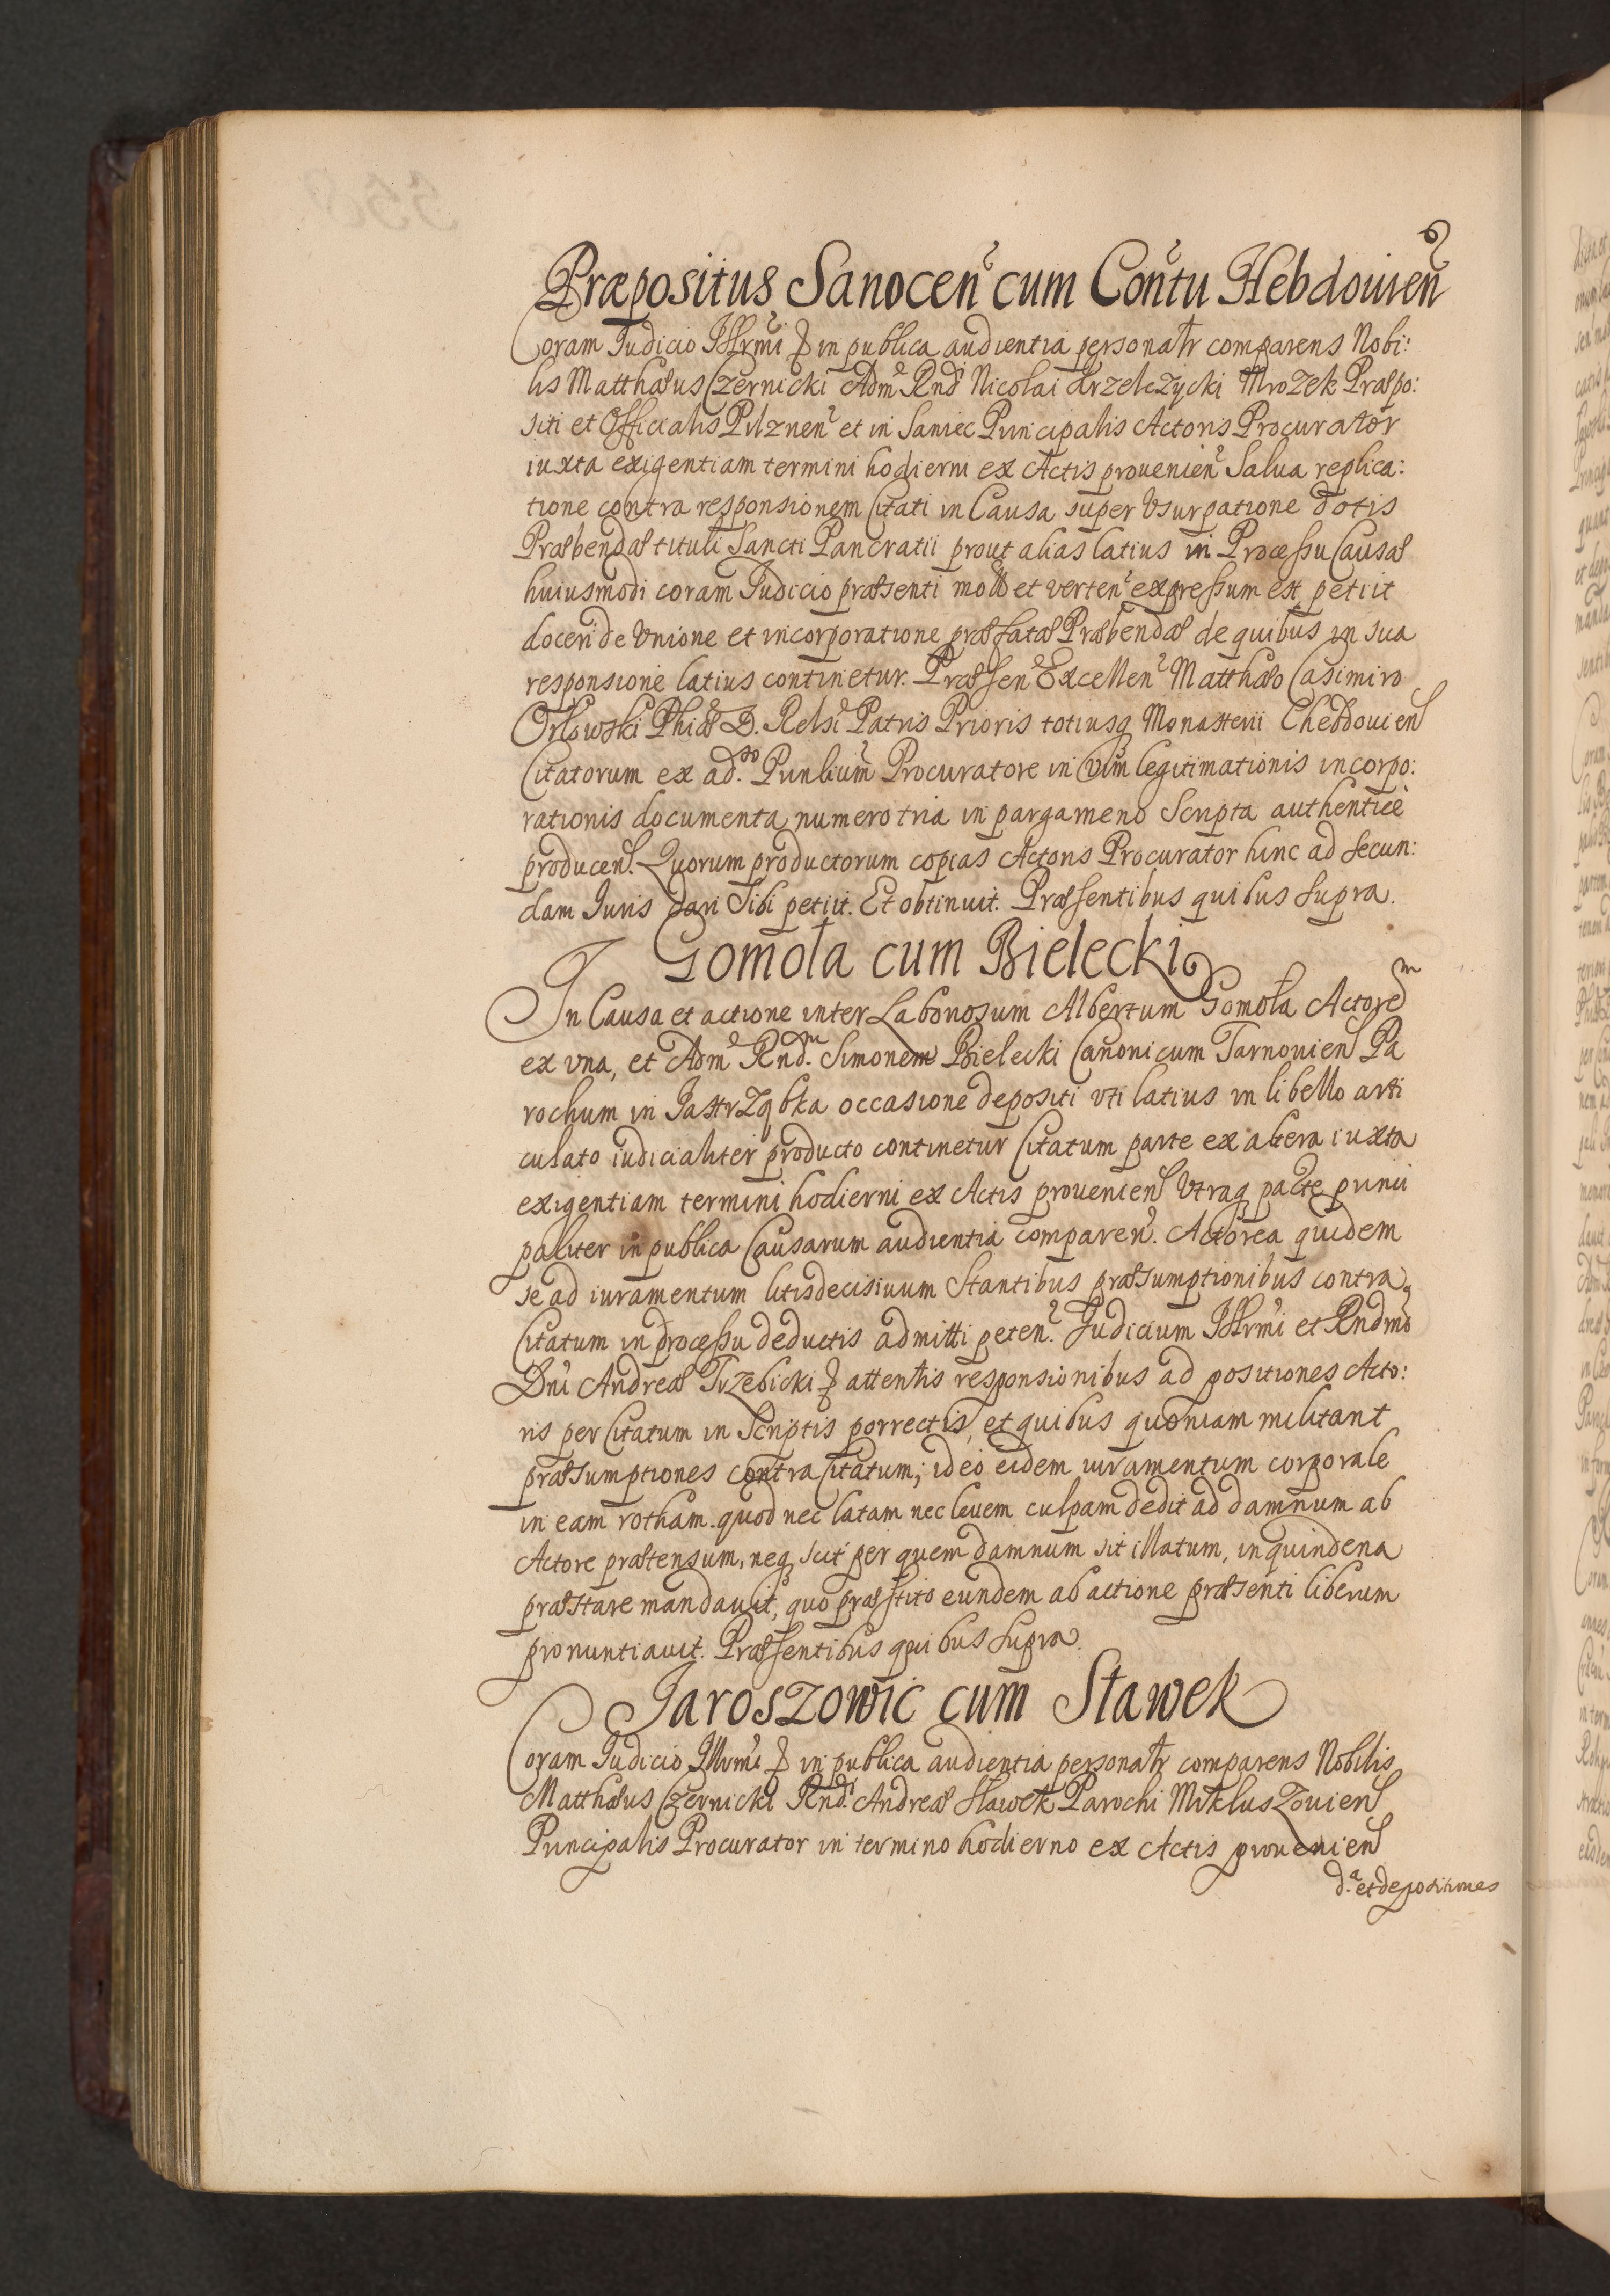 Præpositus Sanocen̄ cum Con̄tu Hebdowien̄
Coram Iudicio Illr̄mi & in publica audientia personalr̄ comparens Nobi:
lis Matthæus Czernicki Adm̄ Rnd̄i Nicolai Krzelczycki Mrozek Præpo:
siti et Officialis Pilznen̄ et in Saniec Principalis Actoris Procurator
iuxta exigentiam termini hodierni ex Actis provenien̄ Salua replica:
tione contra responsionem Citati in Causa super Vsurpatione dotis
Præbendæ tituli Sancti Pancratii prout alias latius in Processu Causæ
huiusmodi coram Iudicio præsenti mot̄ et verten̄ expressum est petiit
doceri de Vnione et incorporatione præfatæ Præbendæ de quibus in sua
responsione latius continetur. Præsen̄ Excellen̄ Matthæo Casimiro
Orłowski Phiæ D. Relsi Patris Prioris totiusq Monasterii Chebdouien̄
Citatorum ex ad.so Punlium̄ Procuratore in Vim legitimationis incorpo:
rationis documenta numero tria in pargameno Scripta authenticè
producen̄. Quorum productorum copias Actoris Procurator hinc ad secun:
dam Iuris dari Sibi petiit. Et obtinuit. Præsentibus quibus supra.
Gomoła cum Bielecki
In Causa et actione inter Laboriosum Albertum Gomoła Actorem
ex vna, et Adm̄ Rnd.m Simonem Bielecki Canonicum Tarnouien̄ Pa
rochum in Jastrząbka occasione depositi vti latius in libello arti
culato iudicialiter producto continetur Citatum parte ex altera iuxta
exigentiam termini hodierni ex Actis prouenien̄ Vtraq parte princi
paliter in publica Causarum audientia comparen̄. Actorea quidem
se ad iuramentum litisdecisiuum Stantibus præsumptionibus contra
Citatum in processu deductis admitti peten̄. Iudicium Illr̄mi et Rndmi
Dn̄i Andreæ Trzebicki & attentis responsionibus ad positiones Acto:
ris per Citatum in Scriptis porrectis, et quibus quoniam militant
præsumptiones contra Citatum; ideo eidem iuramentum corporale
in eam rotham. quod nec latam nec leuem culpam dedit ad damnum ab
Actore prætensum, neq scit per quem damnum sit illatum, in quindena
præstare mandauit, quo præstito eundem ab actione præsenti liberum
pronuntiauit. Præsentibus quibus supra.
Jaroszowic cum Sławek
Coram Iudicio Illr̄mi & in publica audientia personalr̄ comparens Nobilis
Matthæus Czernicki Rnd.i Andreæ Sławek Parochi Mikluszouien̄
Principalis Procurator in termino hodierno ex Actis prouenien̄
d.a et depositiones